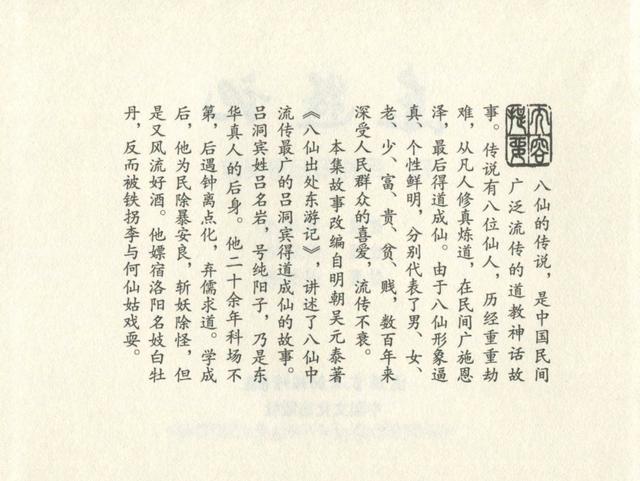 内容提要
八仙的传说，是中国民间
广泛流传的道教神话故
事。传说有八位仙人，历经重重劫
难，从凡人修真炼道，在民间广施恩
泽，最后得道成仙。由于八仙形象逼
真，个性鲜明，分别代表了男、女、
老、少、富、贵、贫、贱，数百年来
深受人民群众的喜爱，流传不衰。
本集故事改编自明朝吴元泰著
《八仙出处东游记》，讲述了八仙中
流传最广的吕洞宾得道成仙的故事。
吕洞宾姓吕名岩，号纯阳子，乃是东
华真人的后身。他二十余年科场不
第，后遇钟离点化，弃儒求道。学成
后，他为民除暴安良，斩妖除怪，但
是又风流好酒。他嫖宿洛阳名妓白牡
丹，反而被铁拐李与何仙姑戏耍。